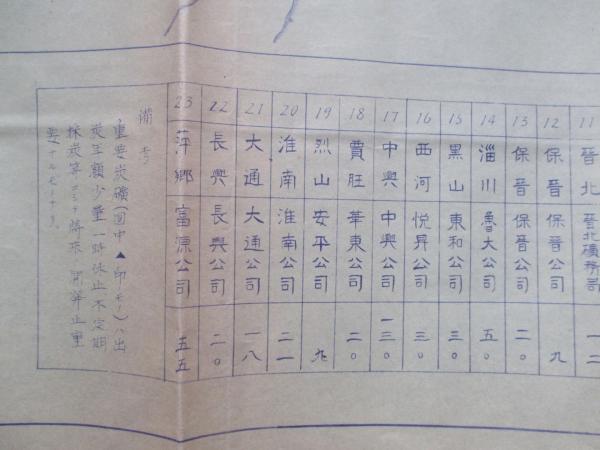 11 晉北 晉北礦務局 一二
12 保晉 保晉公司 九
13 保晉 保晉公司 二〇
14 淄川 魯大公司 五〇
15 黒山 東和公司 三〇
16 西河 悦昇公司 三〇
17 中興 中興公司 一三〇
18 賈旺 華東公司 二〇
19 烈山 安平公司 九
20 淮南 淮南公司 二一
21 大通 大通公司 一八
22 長興 長興公司 二〇
23 萍鄉 富源公司 五五
備考
重要炭礦(図中▲印モノ)ハ出
炭年額少量一時休止不定期
採炭等ニシテ將來